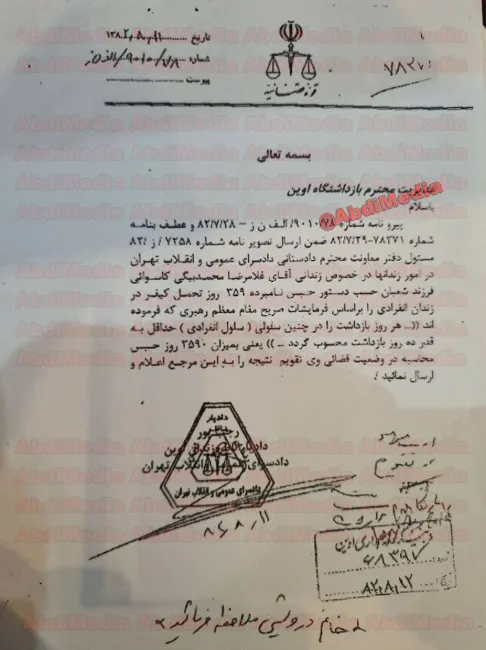 تاریخ
شماره
پیوست
قوه قضائیه
بسمه تعالی
مدیریت محترم بازداشتگاه اوین
باسلام
@AbdiMedia
پیرو نامه شماره ۹۰۱۰/۷۸/الف ن ز – ۸۲/۷/۲۸ و عطف بنامه
شماره ۷۸۳۷۱–۸۲/۷/۲۹ ضمن ارسال تصویر نامه شماره ۷۲۵۸ / ز /۸۲
مسئول دفتر معاونت محترم دادستانی دادسرای عمومی و انقلاب تهران
در امور زندانها در خصوص زندانی آقای غلامرضا محمدبیگی کاسوائی
فرزند شعبان حسب دستور حبس نامبرده ۳۵۹ روز تحمل کیفر در
زندان انفرادی را براساس فرمایشات صریح مقام معظم رهبری که فرموده
اند ((... هر روز بازداشت را در چنین سلولی ( سلول انفرادی ) حداقل به
قدر ده روز بازداشت محسوب گردد ... )) یعنی بمیزان ۳۵۹۰ روز حبس
محاسبه در وضعیت قضائی وی تقویم نتیجه را به این مرجع اعلام و
ارسال نمائید /.
دادیار
دادسرای عمومی و انقلاب تهران
۸۲/۸/۱۱
۶۸۳۹۷
۸۲,۸,۱۲
« خانم درویشی ملاحظه فرمائید »
AbdiMedia